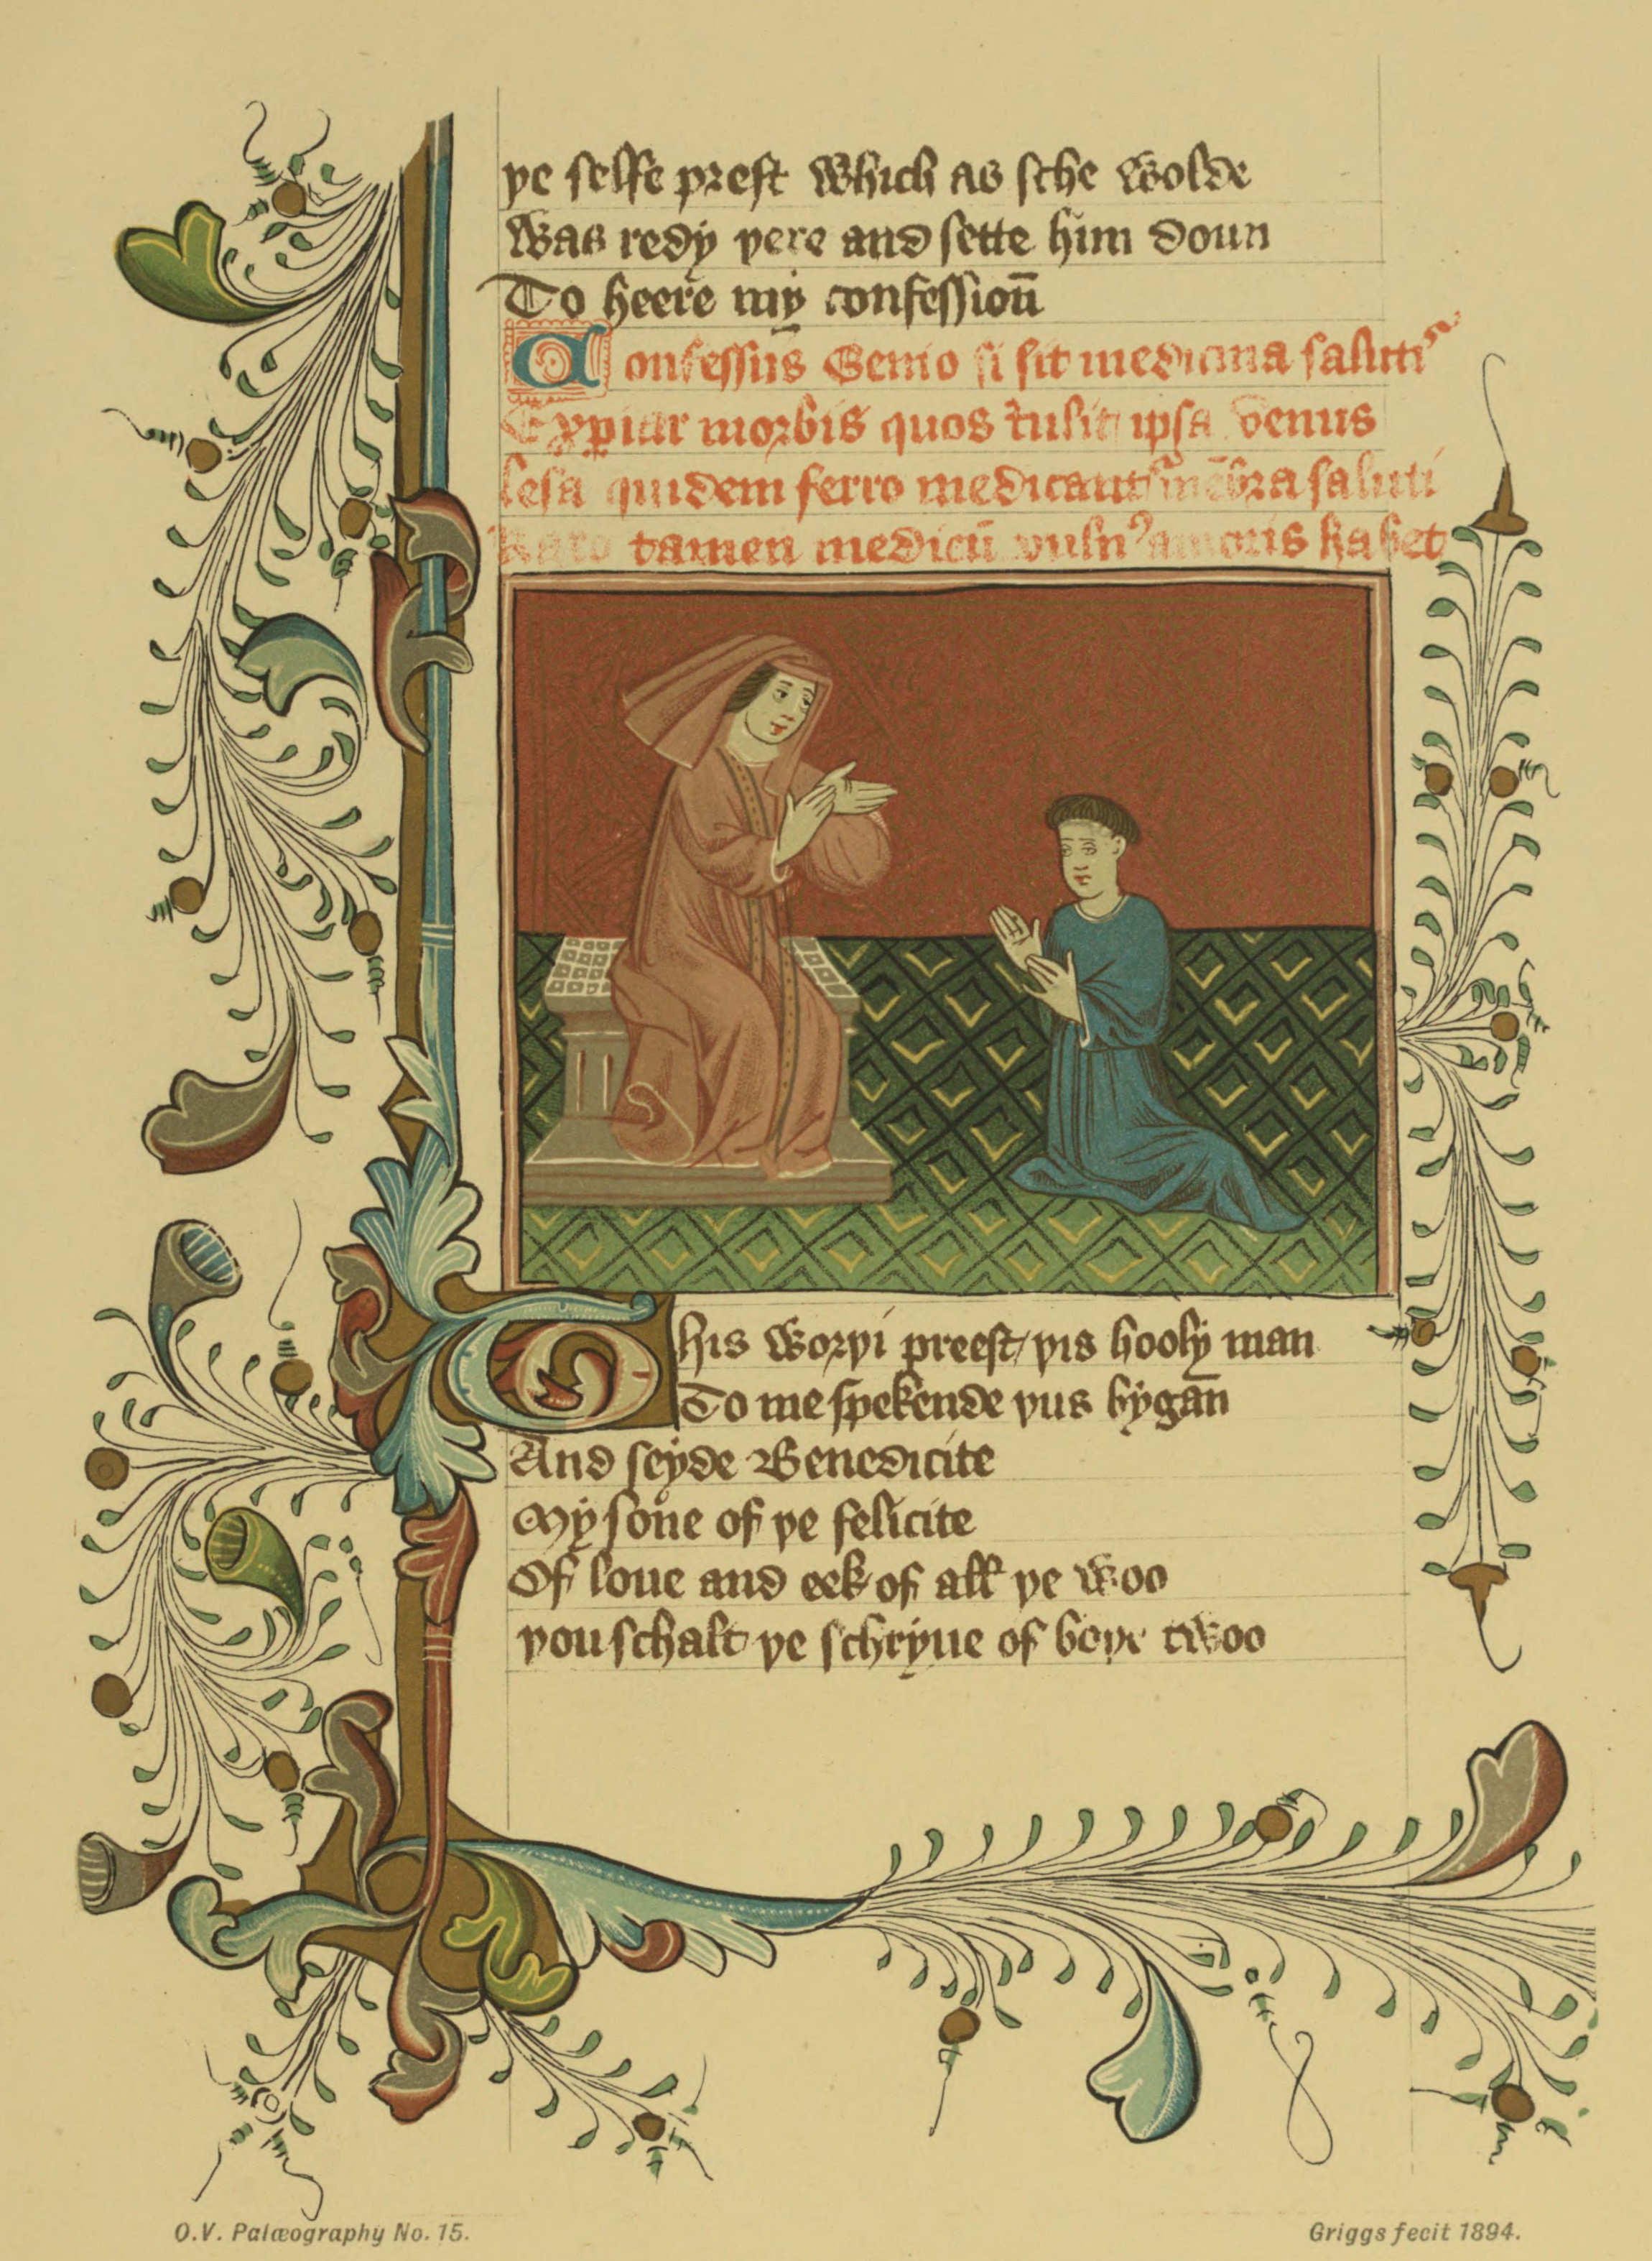 þe selfe prest which as sche wolde
Was redy þere and sette him doun
To heere my confession̄
Confessus Genio si sit medicina saluti⁹
Expiar morbis quos tulit ipsa venus
lesa quidem ferro medicant᷑ mēbra saluti
Raro tamen medicū vuln⁹ amoris habet
This worþi preest / þis hooly man
To me spekende þus bygan̄
And seyde Benedicite
My sone of þe felicite
Of loue and eek of all þe woo
þou schalt þe schryue of boþe twoo
O.V. Palæography No. 15.
Griggs fecit 1894.